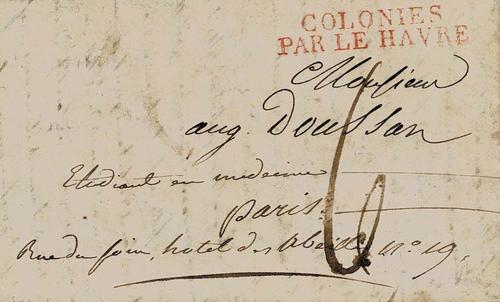 COLONIES
PAR LE HAVRE
Monsieur
aug. Doussan
Etudiant en medecine
paris.
6
Rue du foin, hotel des abeilles, n° 19.